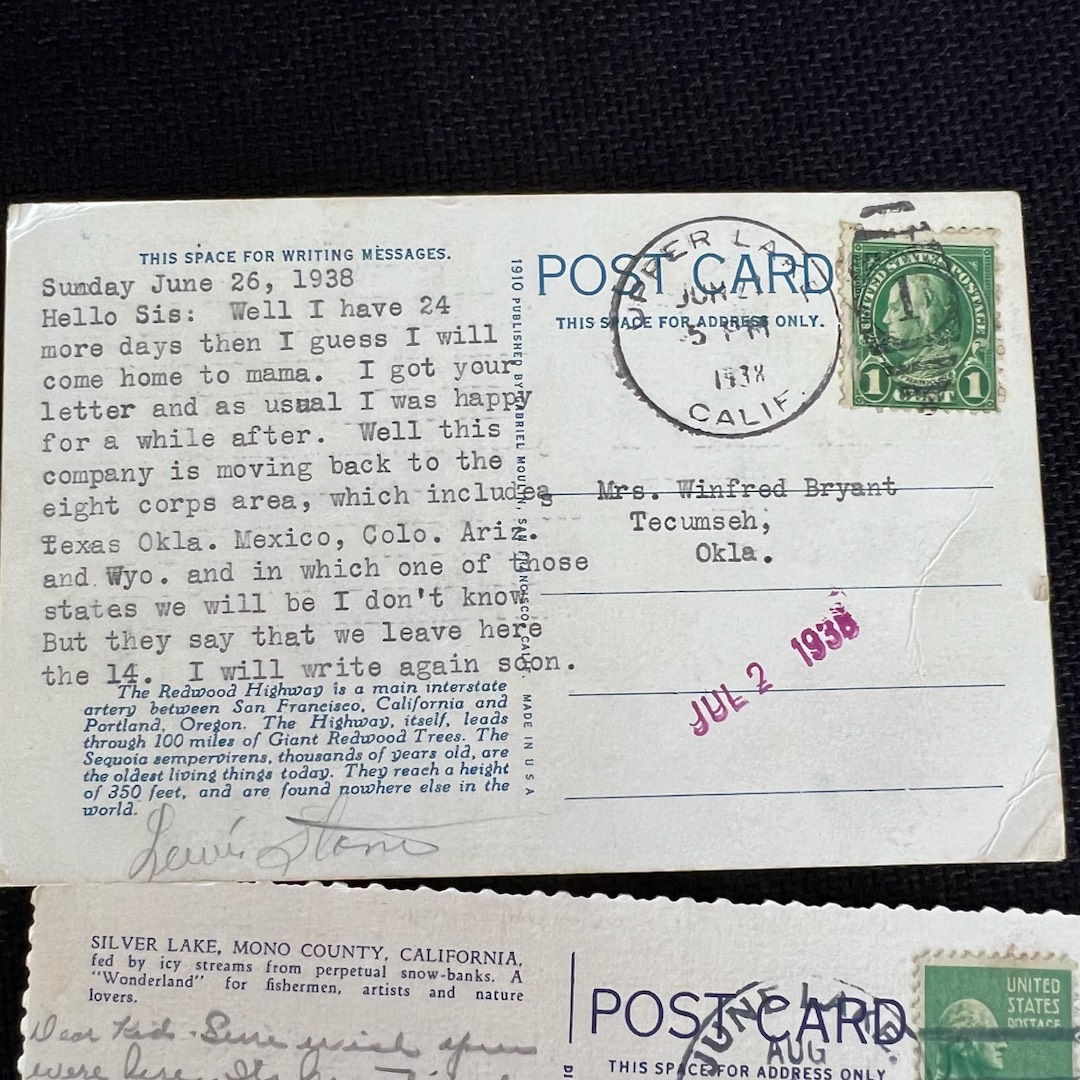 THIS SPACE FOR WRITING MESSAGES.
Sunday June 26, 1938
Hello Sis: Well I have 24
more days then I guess I will
come home to mama. I got your
letter and as usual I was happy
for a while after. Well this
company is moving back to the
eight corps area, which includes
Texas Okla. Mexico, Colo. Ariz.
and Wyo. and in which one of those
states we will be I don't know
But they say that we leave here
the 14. I will write again soon.
The Redwood Highway is a main interstate
artery between San Francisco, California and
Portland, Oregon. The Highway, itself, leads
through 100 miles of Giant Redwood Trees. The
Sequoia sempervirens, thousands of years old, are
the oldest living things today. They reach a height
of 350 feet, and are found nowhere else in the
world.
Lewis
1910 PUBLISHED BY GABRIEL MOULIN, SAN FRANCISCO, CALIF. MADE IN U S A
POST CARD
THIS SPACE FOR ADDRESS ONLY.
UPPER LA
JUN
5 PM
1938
CALIF.
UNITED STATES POSTAGE
1 CENT 1
Mrs. Winfred Bryant
Tecumseh,
Okla.
JUL 2 1938
SILVER LAKE, MONO COUNTY, CALIFORNIA,
fed by icy streams from perpetual snow-banks. A
"Wonderland" for fishermen, artists and nature
lovers.
Dear Kids - Sure wish you
were here. Its
POST CARD
THIS SPACE FOR ADDRESS ONLY
JUNE LAKE
AUG
UNITED
STATES
POSTAGE